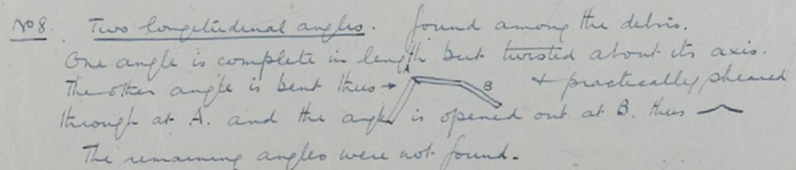 No 8. Two longitudinal angles. found among the debris.
One angle is complete in length but twisted about its axis.
The other angle is bent thus → A B + practically sheared
through at A. and the angle is opened out at B. thus
The remaining angles were not found.